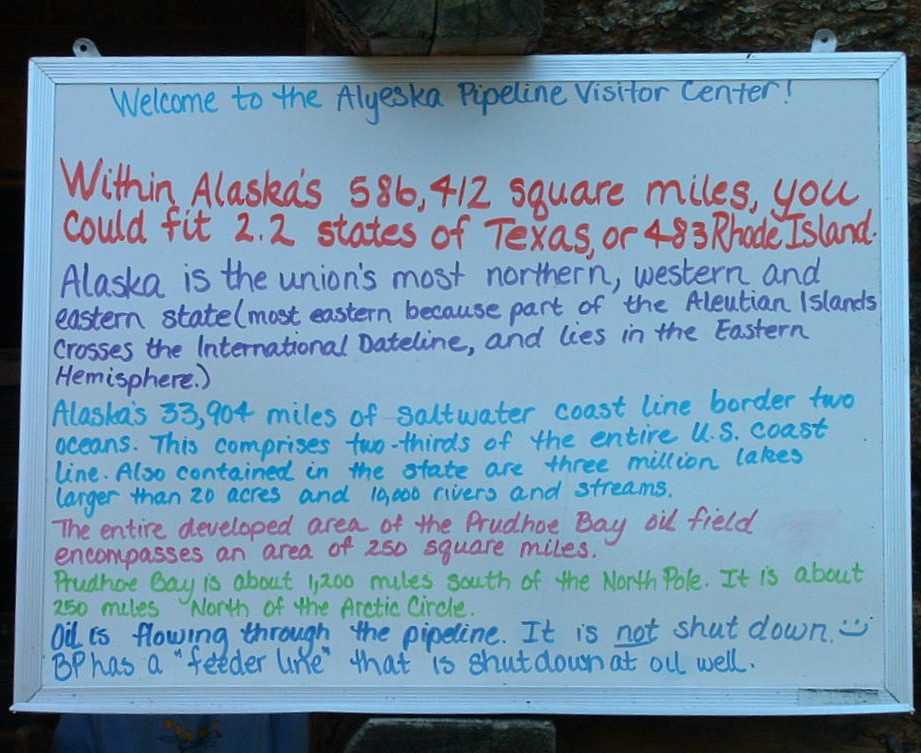 Welcome to the Alyeska Pipeline Visitor Center!
Within Alaska's 586,412 square miles, you
could fit 2.2 states of Texas, or 483 Rhode Island.
Alaska is the union's most northern, western and
eastern state (most eastern because part of the Aleutian Islands
crosses the International Dateline, and lies in the Eastern
Hemisphere.)
Alaska's 33,904 miles of saltwater coast line border two
oceans. This comprises two-thirds of the entire U.S. coast
line. Also contained in the state are three million lakes
larger than 20 acres and 10,000 rivers and streams.
The entire developed area of the Prudhoe Bay oil field
encompasses an area of 250 square miles.
Prudhoe Bay is about 1,200 miles south of the North Pole. It is about
250 miles North of the Arctic Circle.
Oil is flowing through the pipeline. It is not shut down.
BP has a "feeder line" that is shutdown at oil well.